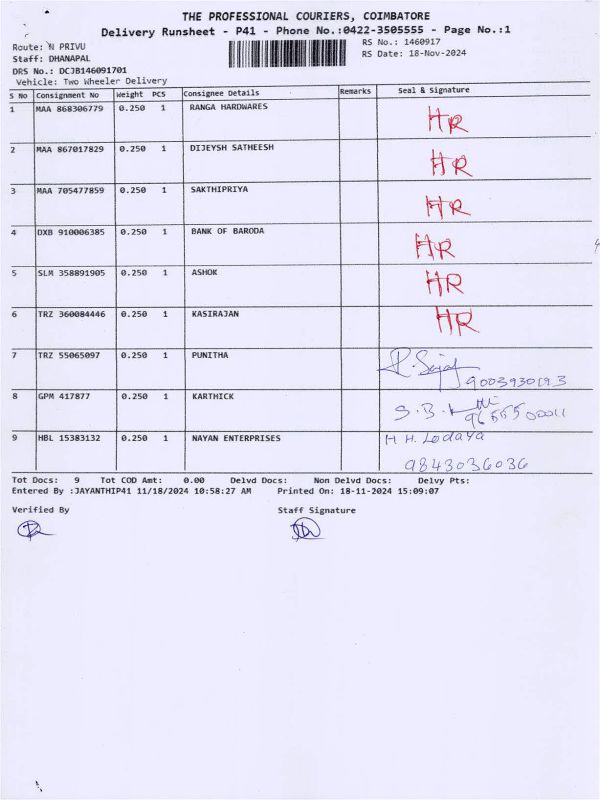 THE PROFESSIONAL COURIERS, COIMBATORE
Delivery Runsheet - P41 - Phone No.:0422-3505555 - Page No.:1
Route: N PRIVU
RS No.: 1460917
Staff: DHANAPAL
RS Date: 18-Nov-2024
DRS No.: DCJB146091701
Vehicle: Two Wheeler Delivery
S No Consignment No Weight PCS Consignee Details Remarks Seal & Signature
1 MAA 868306779 0.250 1 RANGA HARDWARES HR
2 MAA 867017829 0.250 1 DIJEYSH SATHEESH HR
3 MAA 705477859 0.250 1 SAKTHIPRIYA HR
4 DXB 910006385 0.250 1 BANK OF BARODA HR
5 SLM 358891905 0.250 1 ASHOK HR
6 TRZ 360084446 0.250 1 KASIRAJAN HR
7 TRZ 55065097 0.250 1 PUNITHA
8 GPM 417877 0.250 1 KARTHICK S.B.
9 HBL 15383132 0.250 1 NAYAN ENTERPRISES H H. Lodaya
9843036036
Tot Docs: 9 Tot COD Amt: 0.00 Delvd Docs: Non Delvd Docs: Delvy Pts:
Entered By :JAYANTHIP41 11/18/2024 10:58:27 AM Printed On: 18-11-2024 15:09:07
Verified By Staff Signature